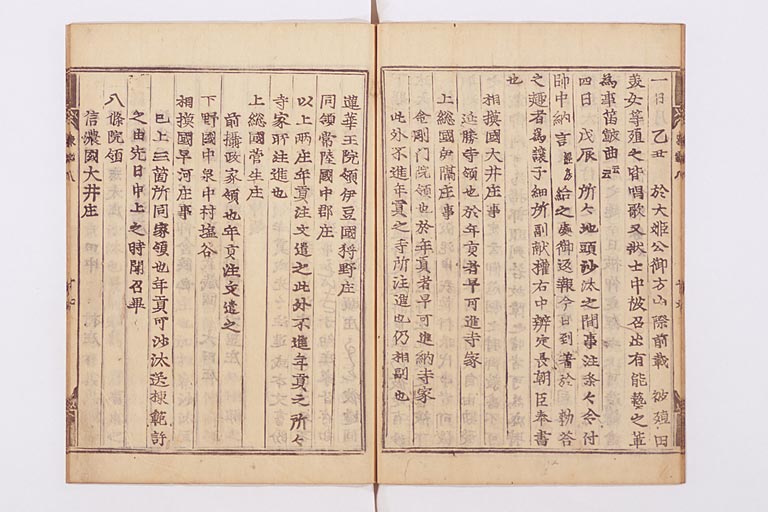 一日 乙丑 於大姫公御方山際前栽 被殖田
美女等殖之皆唱歌又壮士中被召出有能藝之輩
為事笛皷曲云云
四日 戊辰 所々地頭沙汰之間事注条々令付
帥中納言 給之處御返報今日到著於勅答
之趣者為讓子細所副献權右中辨定長朝臣奉書
也
相摸國大井庄事
延勝寺領也於年貢者早可進寺家
上総國伊隅庄事
金剛門院領也於年貢者早可進納寺家
此外不進年貢之寺所注進也仍相副也
蓮華王院領伊豆國狩野庄
同領常陸國中郡庄
以上兩庄年貢注文遣之此外不進年貢之所々
寺家所注進也
上総國菅生庄
前攝政家領也年貢注文遣之
下野國中泉中村塩谷
相摸國早河庄事
已上三箇所同家領也年貢可沙汰送棟範許
之由先日申上之時聞召畢
八條院領
信濃國大井庄